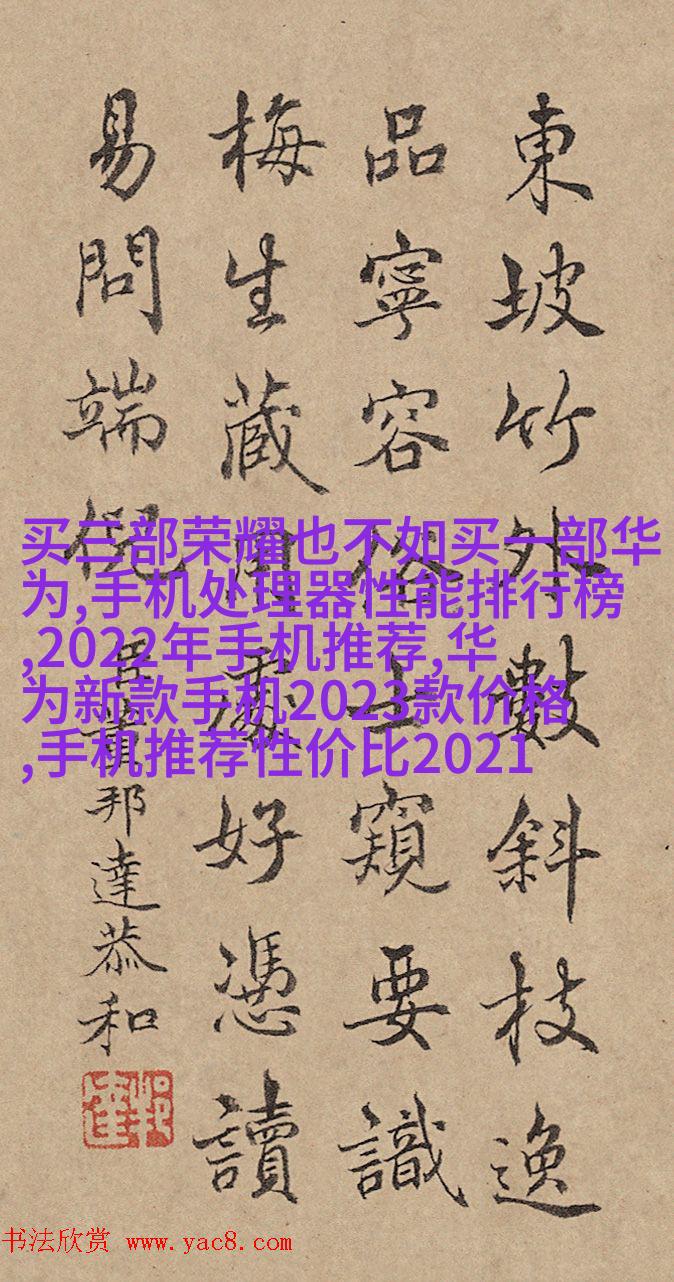 東坡竹外數斜枝逸
品寧容俗士窺要識
梅生藏用處好憑讀
易問端倪
臣董邦達恭和
买三部荣耀也不如买一部华
为,手机处理器性能排行榜
,2022年手机推荐,华
为新款手机2023款价格
,手机推荐性价比2021
书法欣赏 www.yac8.com